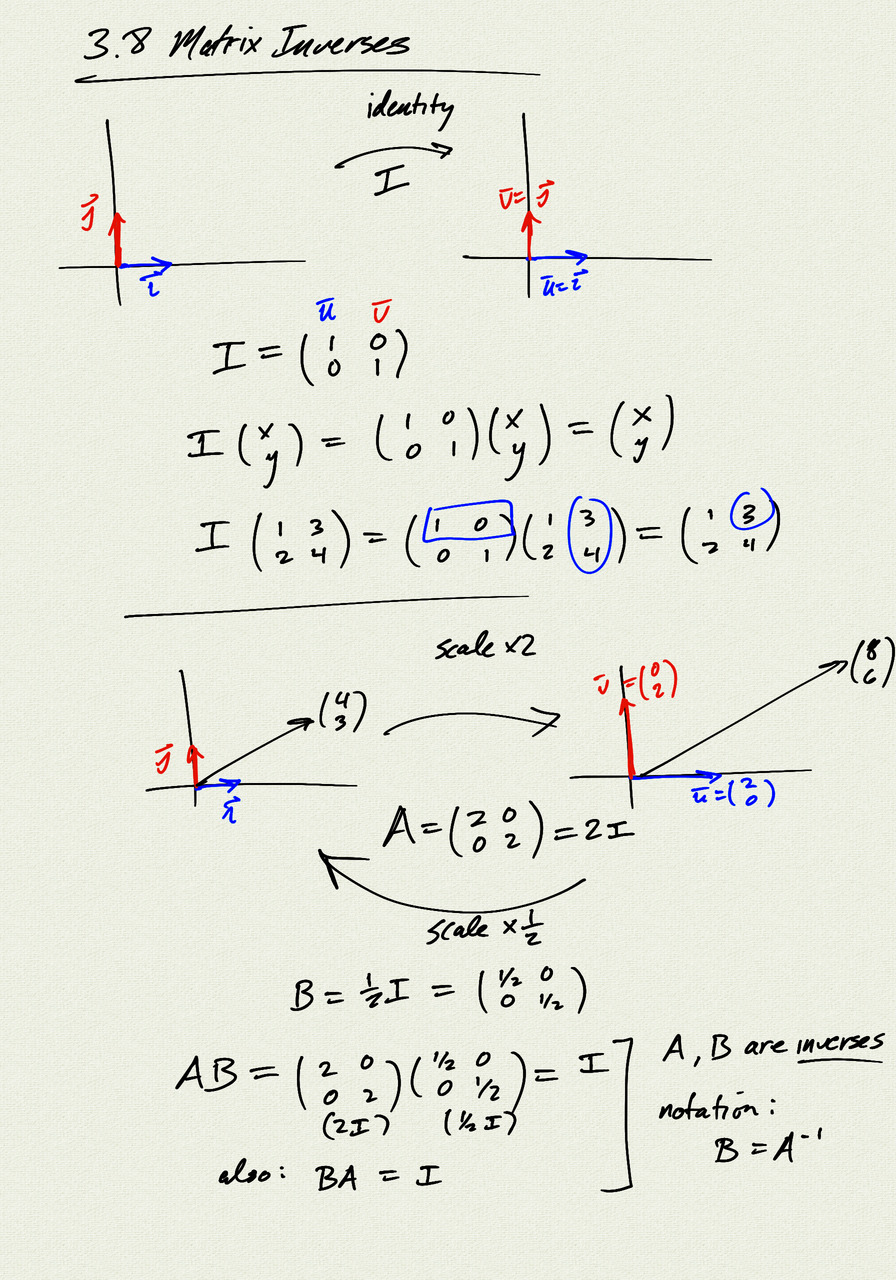 3.8 Matrix Inverses
identity
I
j⃗
i⃗
v̄ = j⃗
ū = i⃗
ū v̄
I = (1 0; 0 1)
I (x; y) = (1 0; 0 1)(x; y) = (x; y)
I (1 3; 2 4) = (1 0; 0 1)(1 3; 2 4) = (1 3; 2 4)
scale ×2
j⃗
i⃗
(4; 3)
v̄ = (0; 2)
ū = (2; 0)
(8; 6)
A = (2 0; 0 2) = 2I
scale × 1/2
B = 1/2 I = (1/2 0; 0 1/2)
AB = (2 0; 0 2)(1/2 0; 0 1/2) = I
(2I) (1/2 I)
also: BA = I
A, B are inverses
notation:
B = A⁻¹